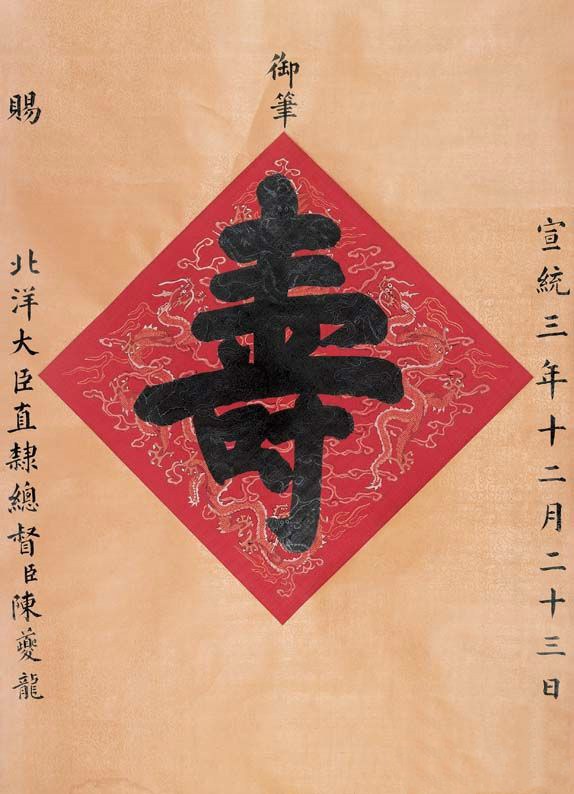 御筆
壽
宣統三年十二月二十三日
賜
北洋大臣直隸總督臣陳夔龍